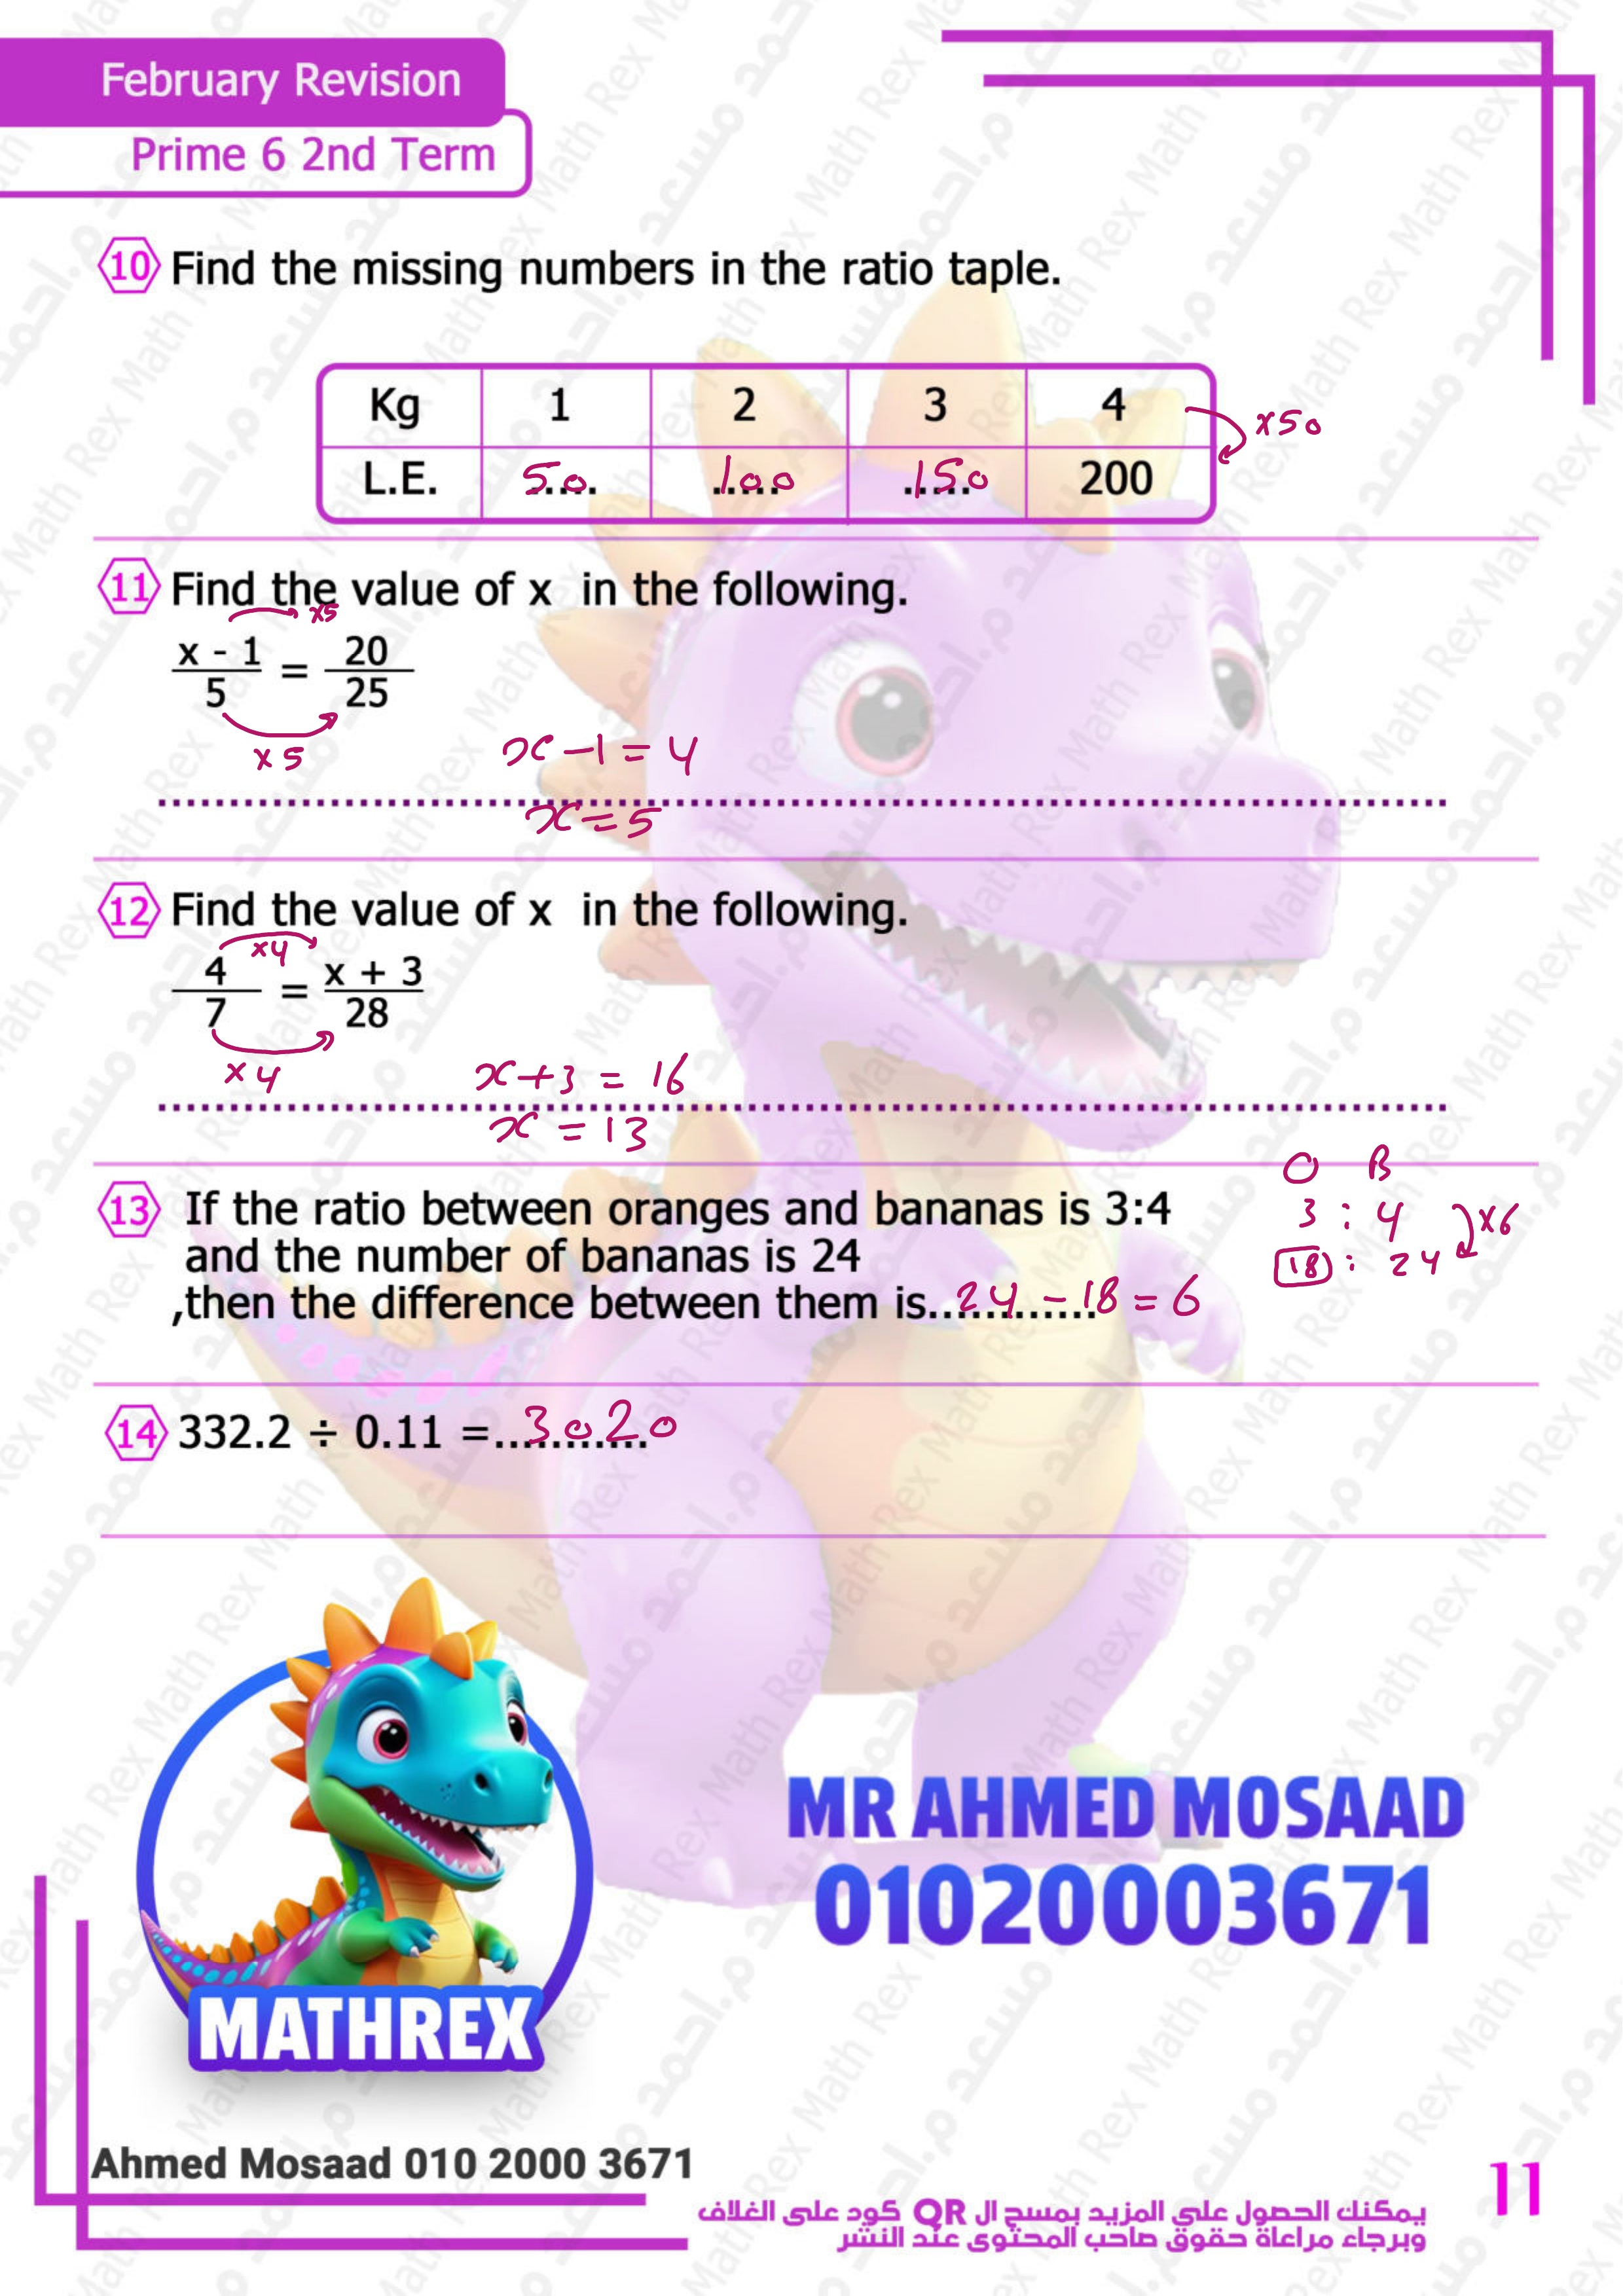 February Revision
Prime 6 2nd Term
10 Find the missing numbers in the ratio taple.
Kg 1 2 3 4
×50
L.E. 50 100 150 200
11 Find the value of x in the following.
×5
x - 1 = 20
5 25
×5
x - 1 = 4
x = 5
12 Find the value of x in the following.
×4
4 = x + 3
7 28
×4
x + 3 = 16
x = 13
O B
13 If the ratio between oranges and bananas is 3:4
3 : 4 ×6
and the number of bananas is 24
18 : 24
,then the difference between them is............ 24 - 18 = 6
14 332.2 ÷ 0.11 =........... 3020
MR AHMED MOSAAD
01020003671
MATHREX
Ahmed Mosaad 010 2000 3671
11
يمكنك الحصول علي المزيد بمسح ال QR كود على الغلاف
وبرجاء مراعاة حقوق صاحب المحتوى عند النشر
Math Rex م.احمد مسعد